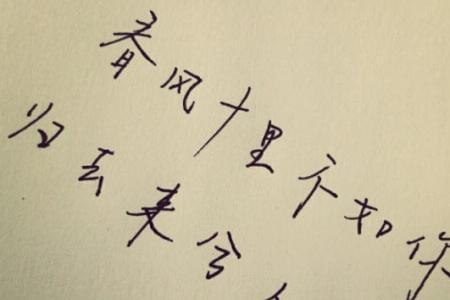 春风十里不如你
归去来兮